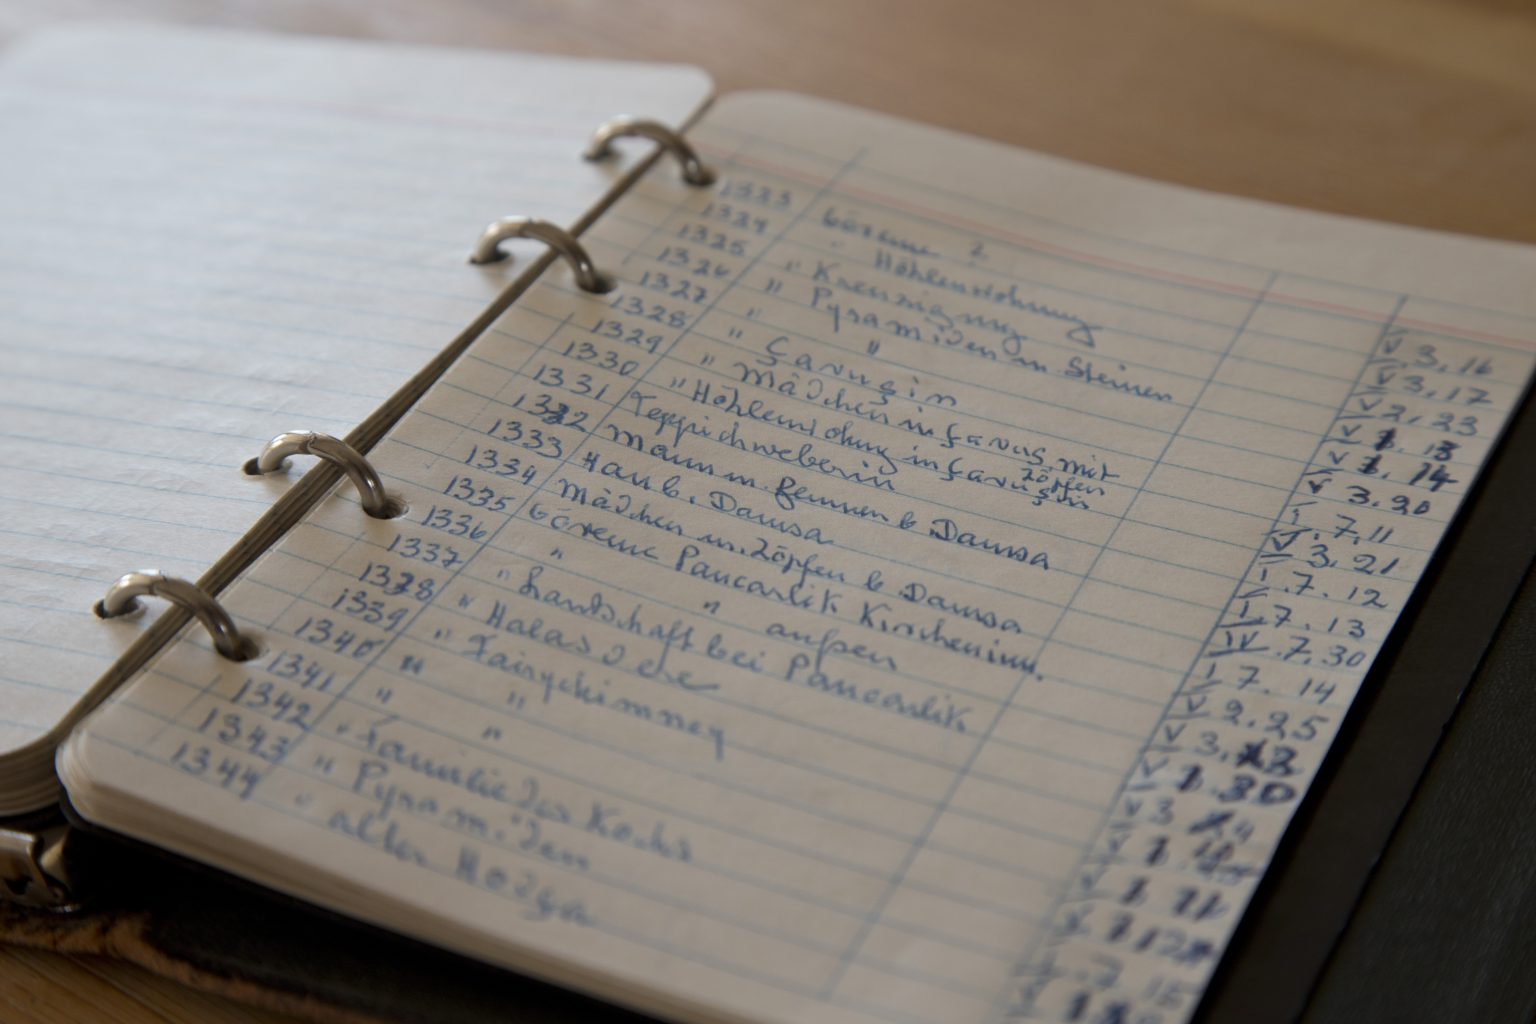 1323 Göreme 2 V 3. 16
1324 " Höhlenwohnung V 3. 17
1325 " Kreuzigung V 2. 23
1326 " Pyramiden m Steinen V 1. 13
1327 " " V 1. 14
1328 " Çavuşin V 3. 20
1329 " Mädchen in Çavuş mit Zöpfen I. 7. 11
1330 " Höhlenwohnung in Çavuşin V 3. 21
1331 Teppichweberin I. 7. 12
1332 Mann m. Pennen b Damsa I. 7. 13
1333 Han b. Damsa IV. 7. 30
1334 Mädchen m. Zöpfen b Damsa I 7. 14
1335 Göreme Pancarlik Kirche inn. V 2. 25
1336 " " außen V 3.
1337 " Landschaft bei Pancarlik V 1. 30
1338 " Halasdere V 3
1339 " Fairychimney V 1
1340 " " V 1
1341 " " V 1.
1342 " Familie des Kochs I. 7.
1343 " Pyramiden
1344 " alter Hodja